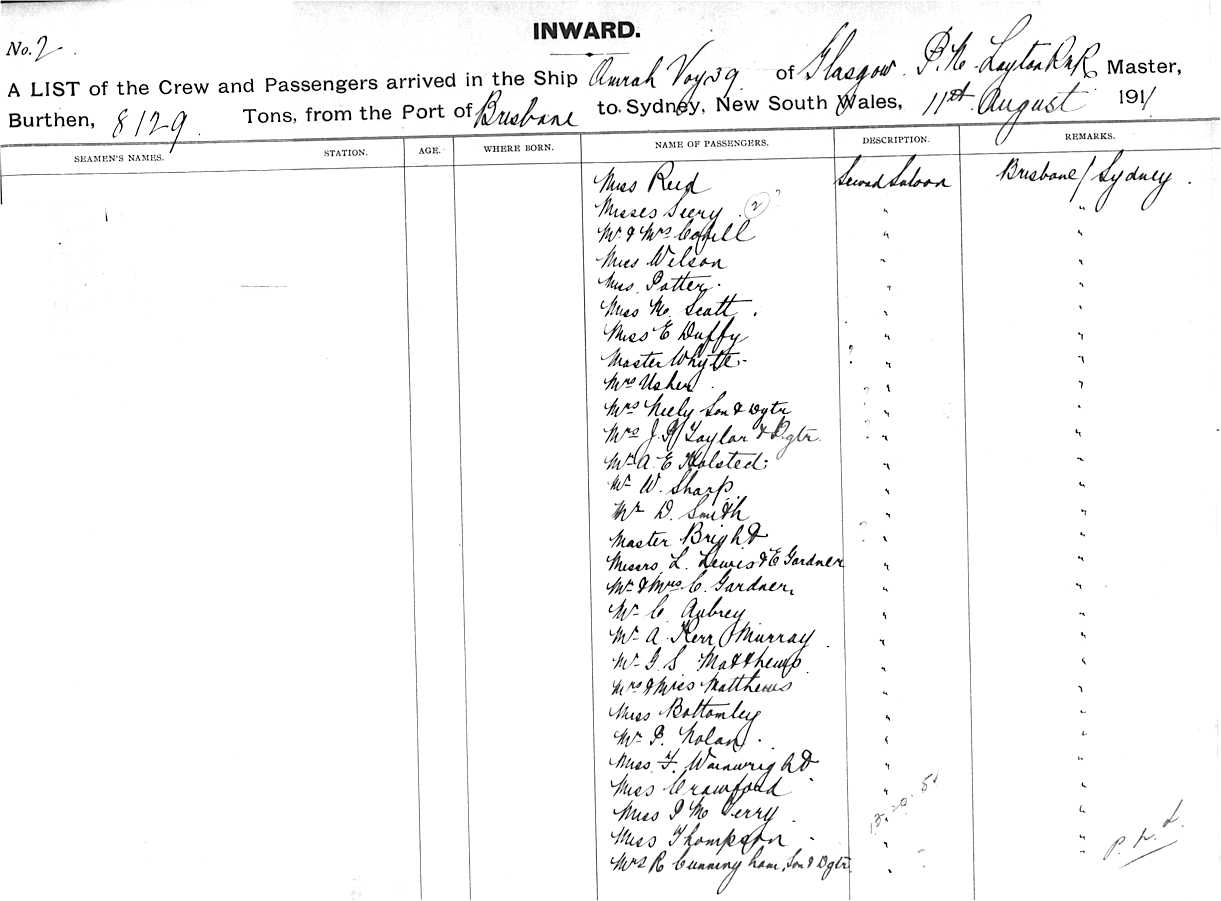 INWARD.
No. 2
A LIST of the Crew and Passengers arrived in the Ship Omrah Voy 39 of Glasgow. P. N. Layton RNR Master,
Burthen, 8129. Tons, from the Port of Brisbane to Sydney, New South Wales, 11th August 1911
SEAMEN'S NAMES. STATION. AGE. WHERE BORN. NAME OF PASSENGERS. DESCRIPTION. REMARKS.
Miss Reid Second Saloon Brisbane / Sydney.
Misses Seery 2 ? " "
Mr & Mrs " "
Miss Wilson " "
Miss Potter. " "
Miss M. Scott. " "
Miss E Duffy " "
Master Whyte. ? " "
Mrs Usher ? " "
Mrs Neely Son & Dgtr ? " "
Mrs J. P. Taylor & Dgtr. ? " "
Mr A. E Holsted " "
Mr W. Sharp. " "
Mr D. Smith " "
Master Bright ? " "
Messrs L. Lewis & E Gardner " "
Mr & Mrs C. Gardner, " "
Mr C Aubrey " "
Mr A Kerr Murray " "
Mr I. S Matthews " "
Mrs & Miss Matthews " "
Miss Bottomley " "
Mr P. Nolan. " "
Miss F. Wainwright " "
Miss Crawford " "
Miss I M Perry " "
Miss Thompson " "
Mrs R Cunningham, Son & Dgtr. " "